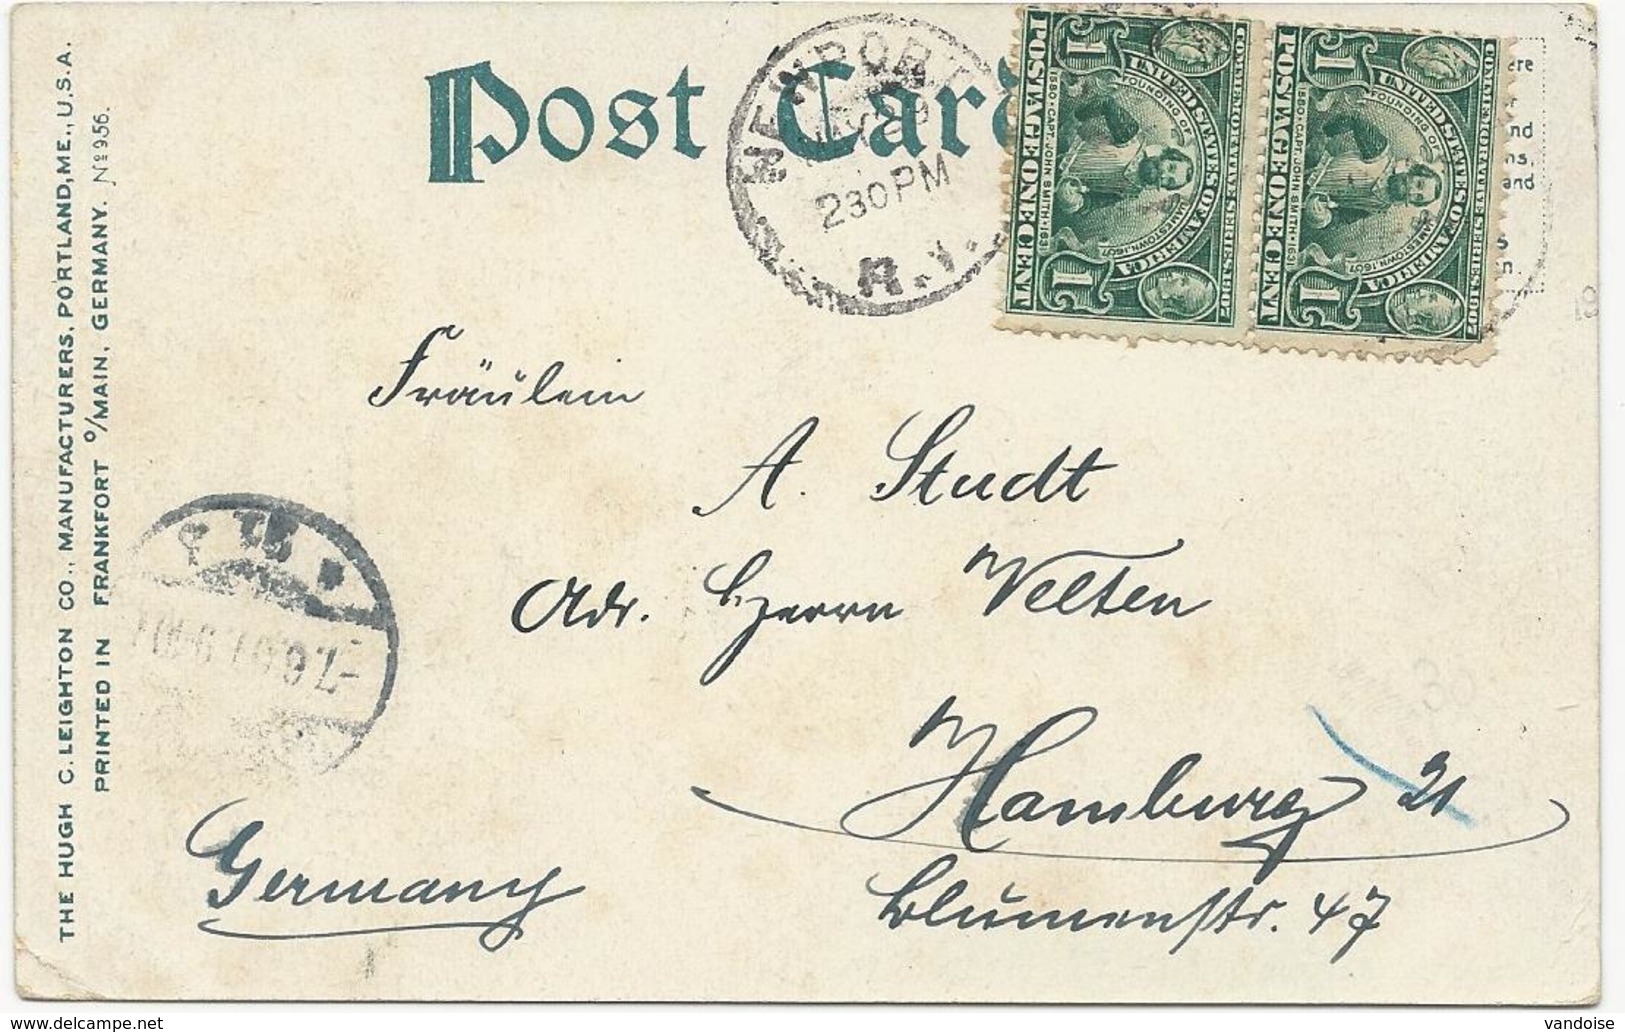 Post Card
THE HUGH C. LEIGHTON CO., MANUFACTURERS, PORTLAND, ME., U.S.A.
PRINTED IN FRANKFORT O/MAIN, GERMANY. No 956.
NEWPORT
230 PM
R.I.
COMMEMORATIVE SERIES 1907
UNITED STATES OF AMERICA
FOUNDING OF JAMESTOWN, 1607
1580 • CAPT. JOHN SMITH • 1631
POSTAGE ONE CENT
1
1
COMMEMORATIVE SERIES 1907
UNITED STATES OF AMERICA
FOUNDING OF JAMESTOWN, 1607
1580 • CAPT. JOHN SMITH • 1631
POSTAGE ONE CENT
1
1
Fräulein
A. Studt
Adr. Herrn Velten
Hamburg 21
Blumenstr. 47
Germany
vandoise